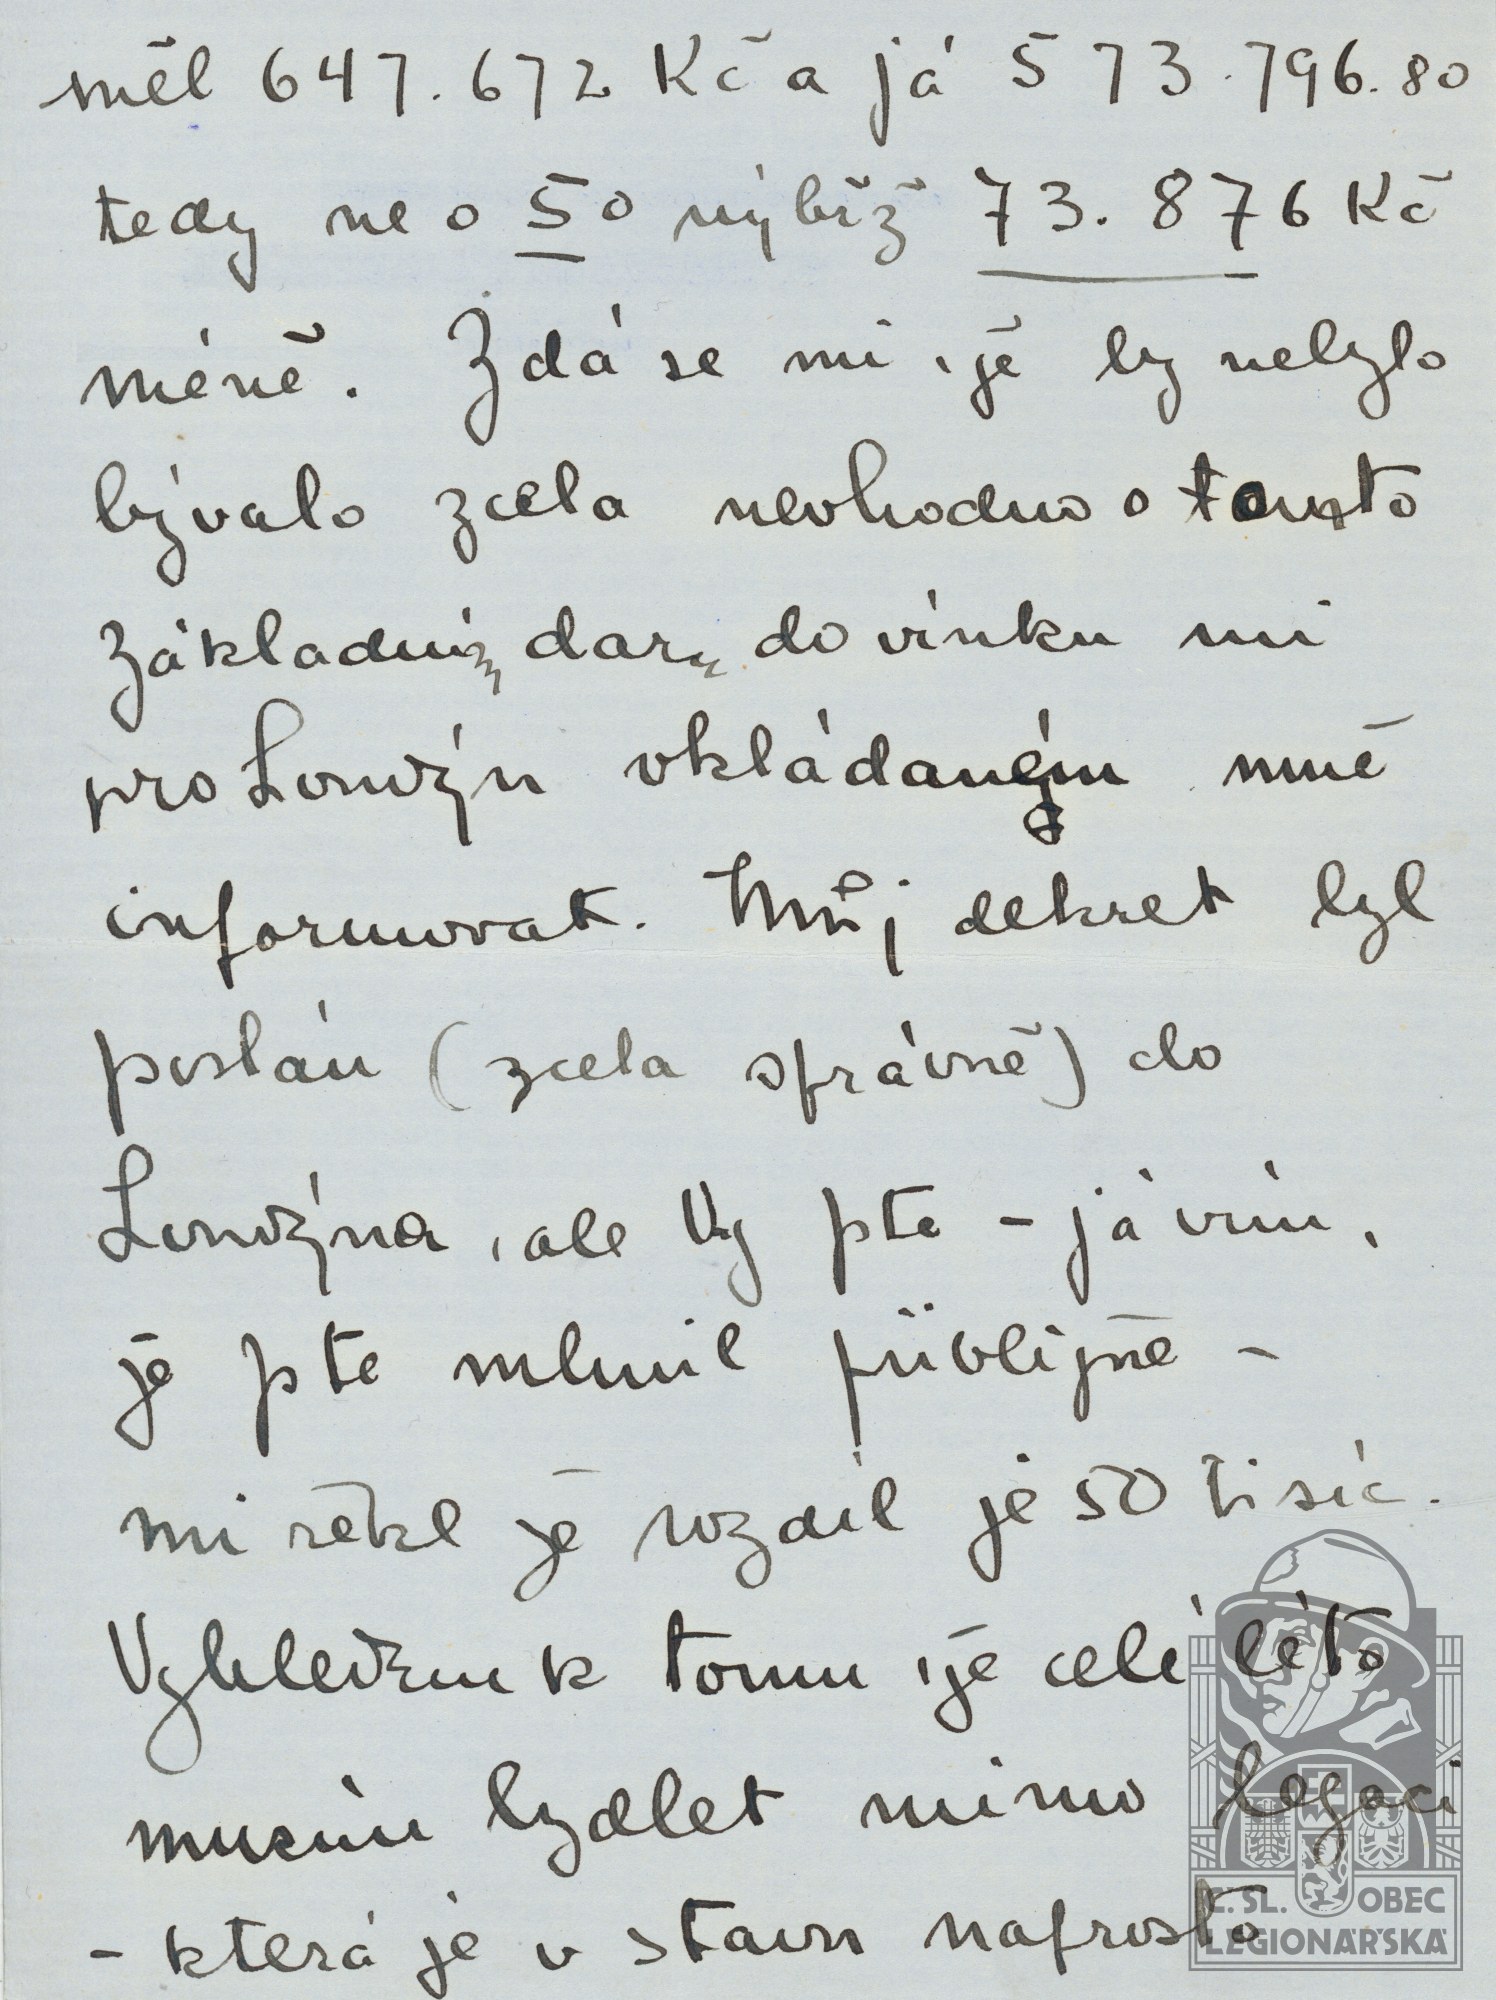 měl 647.672 Kč a já 573.796.80
tedy ne o 50 nýbrž 73.876 Kč
méně. Zdá se mi, že by nebylo
bývalo zcela nevhodno o tomto
základním daru do vínku mi
pro Londýn vkládaným mně
informovat. Můj dekret byl
poslán (zcela správně) do
Londýna, ale Vy pte - já vím,
že pte mluvil přibližně -
mi řekl že rozdíl je 50 tisíc.
Vzhledem k tomu, že celé léto
musím bydlet mimo legaci
- která je v stavu naprosto
Č. SL. OBEC
LEGIONÁŘSKÁ